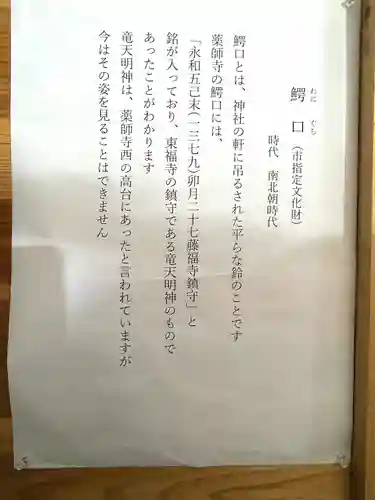 鰐口(市指定文化財)
わに ぐち
時代 南北朝時代
鰐口とは、神社の軒に吊るされた平らな鈴のことです
薬師寺の鰐口には、
「永和五己未(一三七九)卯月二十七藤福寺鎮守」と
銘が入っており、東福寺の鎮守である竜天明神のもので
あったことがわかります
竜天明神は、薬師寺西の高台にあったと言われていますが
今はその姿を見ることはできません